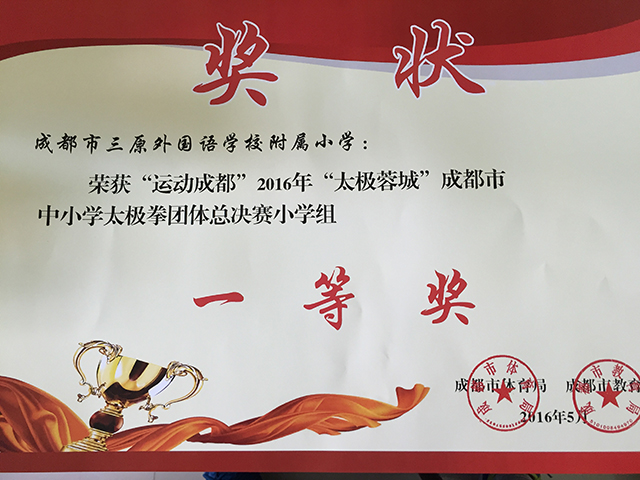 奖状
成都市三原外国语学校附属小学：
荣获“运动成都”2016年“太极蓉城”成都市
中小学太极拳团体总决赛小学组
一等奖
成都市体育局 成都市教育
2016年5月
成都市体育局
成都市教
5101006494870